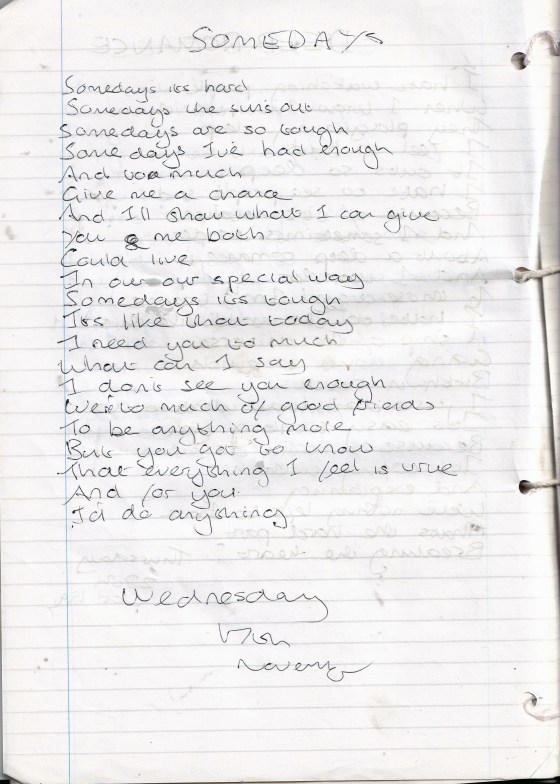 SOMEDAYS
Somedays its hard
Somedays the suns out
Somedays are so tough
Some days I've had enough
And too much
Give me a chance
And I'll show what I can give
You & me both
Could live
In our our special way
Somedays its tough
Its like that today
I need you to much
What can I say
I don't see you enough
We're to much of good friends
To be anything more
But you got to know
That everything I feel is true
And for you
I'd do anything
Wednesday
17th
November